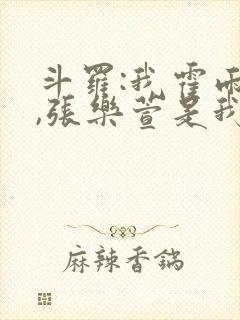 斗羅:我霍雨
,張樂萱是我
麻辣香鍋